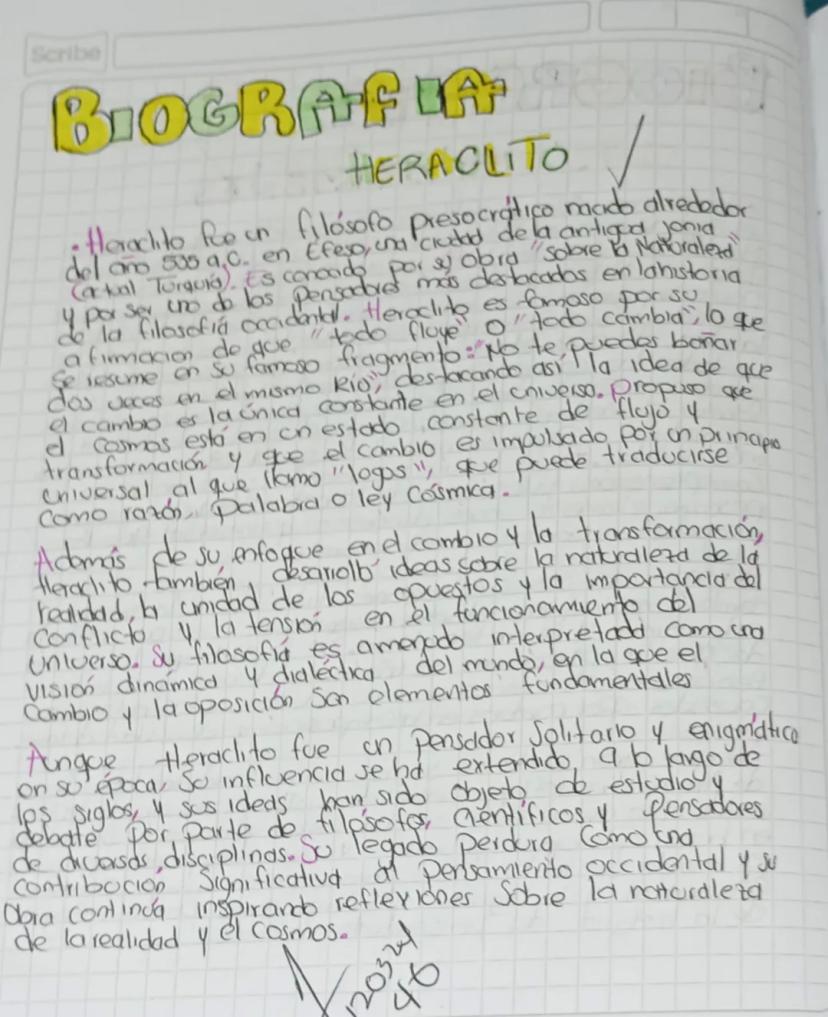 Scribe
BIOGRAFIA
HERACLITO
• Heraclito fue un filósofo presocrático nacido alrededor
del año 535 a.C. en Efeso, una ciudad de la antigua jonia
(actual Turquía). Es conocido por su obra "sobre la Naturaleza"
y por ser uno de los pensadores más destacados en la historia
de la filosofía occidental. Heraclito es famoso por su
afirmacion de que "todo fluye" o "todo cambia", lo que
se resume en su famoso fragmento: "No te puedes bañar
dos veces en el mismo Rio", destacando así la idea de que
el cambio es la única constante en el universo. Propuso que
el cosmos está en un estado constante de flujo y
transformación y que el cambio es impulsado por un principio
universal al que llamo "logos", que puede traducirse
como razón, palabra o ley cósmica.
Además de su enfoque en el cambio y la transformación,
Heraclito también desarrolló ideas sobre la naturaleza de la
realidad, la unidad de los opuestos y la importancia del
conflicto y la tensión en el funcionamiento del
universo. Su filosofía es amenudo interpretada como una
visión dinámica y dialéctica del mundo, en la que el
cambio y la oposición son elementos fundamentales
Aunque Heraclito fue un pensador solitario y enigmático
en su época, su influencia se ha extendido a lo largo de
los siglos, y sus ideas han sido objeto de estudio y
debate por parte de filósofos, científicos y pensadores
de diversas disciplinas. Su legado perdura como una
contribucion significativa al pensamiento occidental y su
obra continúa inspirando reflexiones sobre la naturaleza
de la realidad y el cosmos.